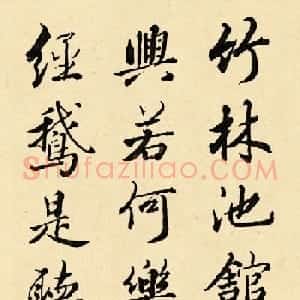 竹林池館
興若何樂
經鵝是聽
Shufaziliao.com